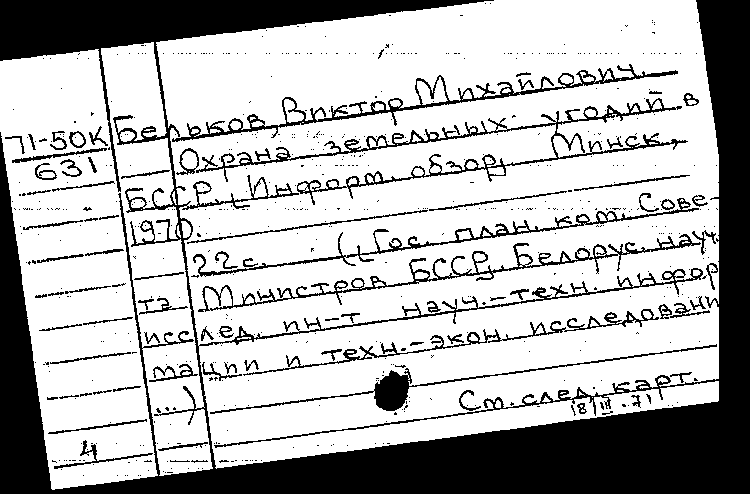 71-50К Бельков, Виктор Михайлович.
631 Охрана земельных угодий в
БССР. [Информ. обзор]. Минск,
1970.
22 с. ([Гос. план. ком. Сове-
та Министров БССР]. Белорус. науч.
исслед. ин-т науч.-техн. инфор
мации и техн.-экон. исследовани
...)
См. след. карт.
18/III.71
4